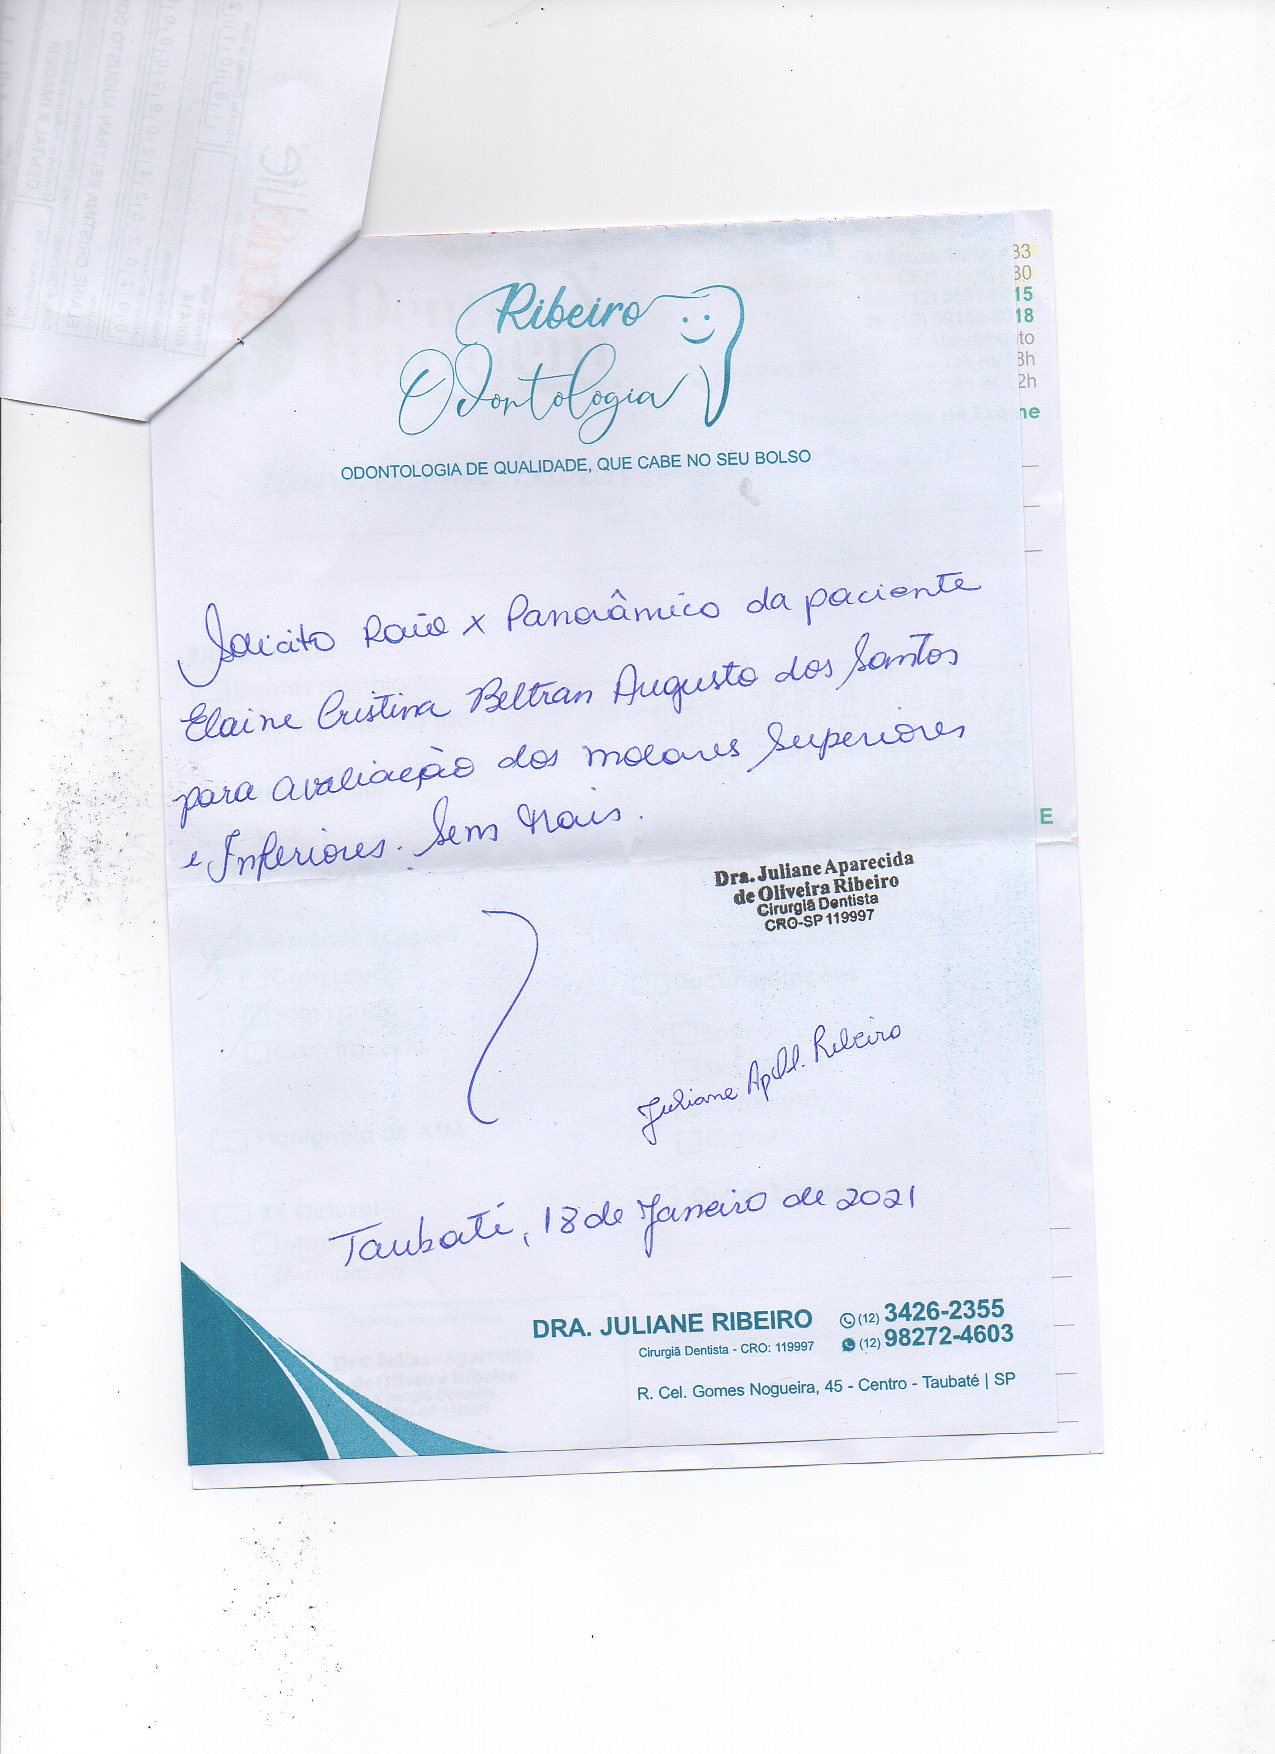 Ribeiro
Odontologia
ODONTOLOGIA DE QUALIDADE, QUE CABE NO SEU BOLSO
33
30
15
18
to
3h
2h
ne
Solicito Raio x Panorâmico da paciente
Elaine Cristina Beltran Augusto dos Santos
para avaliação dos molares Superiores
e Inferiores. Sem Mais.
E
Dra. Juliane Aparecida
de Oliveira Ribeiro
Cirurgiã Dentista
CRO-SP 119997
Juliane Ap. Ol. Ribeiro
Taubaté, 18 de Janeiro de 2021
DRA. JULIANE RIBEIRO (12) 3426-2355
Cirurgiã Dentista - CRO: 119997 (12) 98272-4603
R. Cel. Gomes Nogueira, 45 - Centro - Taubaté | SP